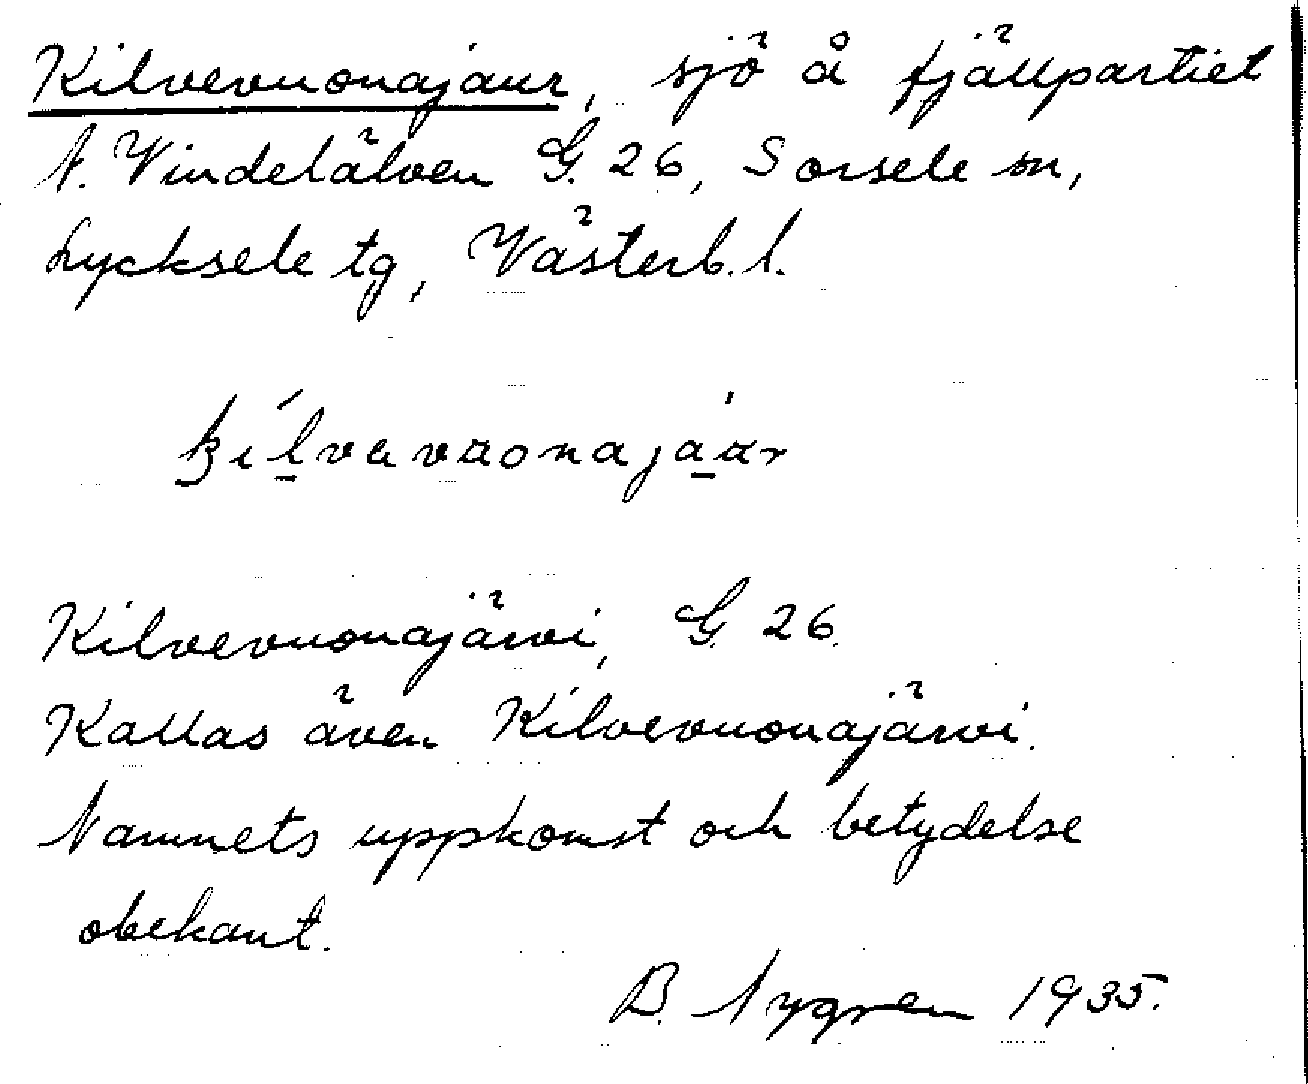 Kilvevuonajaur, sjö å fjällpartiet
N. Vindelälven G. 26, Sorsele sn,
Lycksele tg, Västerb. l.
Kilvevuonajärvi, G. 26.
Kallas även Kilvevuonajärvi.
Namnets uppkomst och betydelse
obekant.
B. Nygren 1935.